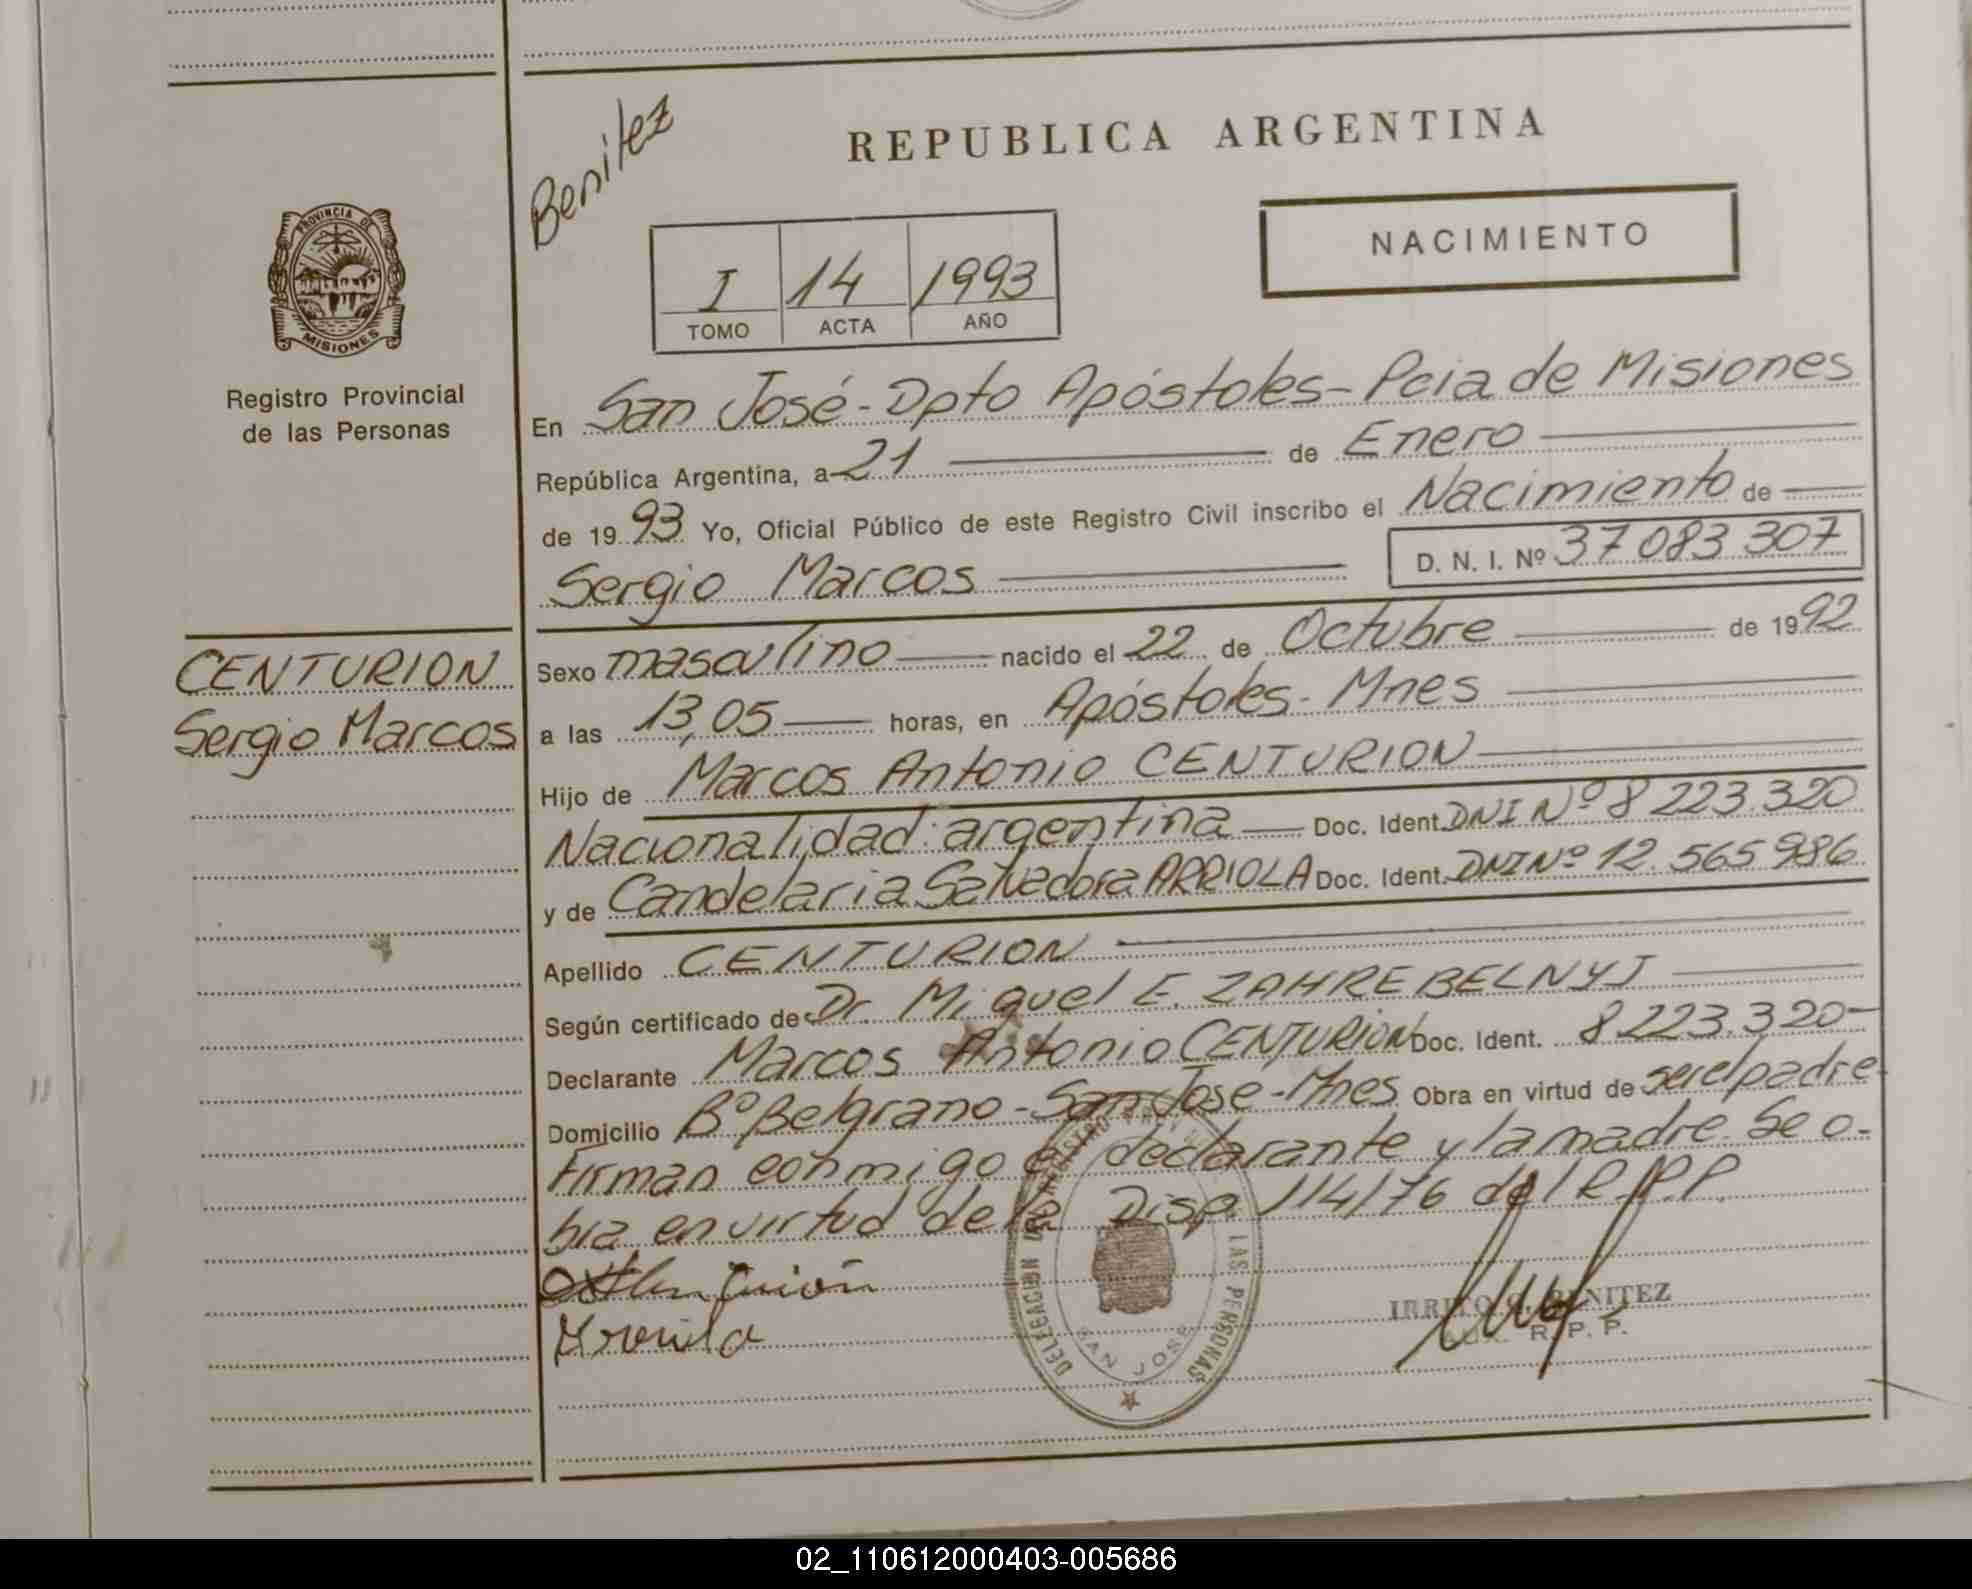 Benitez
REPUBLICA ARGENTINA
NACIMIENTO
I 14 1993
TOMO ACTA AÑO
PROVINCIA DE
MISIONES
Registro Provincial
de las Personas
En San José - Dpto Apóstoles - Pcia de Misiones
República Argentina, a 21 de Enero
de 1993 Yo, Oficial Público de este Registro Civil inscribo el Nacimiento de
Sergio Marcos D. N. I. Nº 37 083 307
CENTURION
Sergio Marcos
Sexo masculino nacido el 22 de Octubre de 1992
a las 13,05 horas, en Apóstoles - Mnes
Hijo de Marcos Antonio CENTURION
Nacionalidad: argentina Doc. Ident. DNI Nº 8 223.320
y de Candelaria Salvadora ARRIOLA Doc. Ident. DNI Nº 12.565 986
Apellido CENTURION
Según certificado de Dr. Miguel E. ZAHREBELNYJ
Declarante Marcos Antonio CENTURION Doc. Ident. 8 223.320-
Domicilio Bº Belgrano - San Jose - Mnes Obra en virtud de ser el padre
Firman conmigo el declarante y la madre. Se o-
bra en virtud de la Disp 114/76 del R.P.P.
DELEGACION DEL REGISTRO PROVINCIAL DE LAS PERSONAS
SAN JOSE
BENITEZ
AUX. R. P. P.
02_110612000403-005686